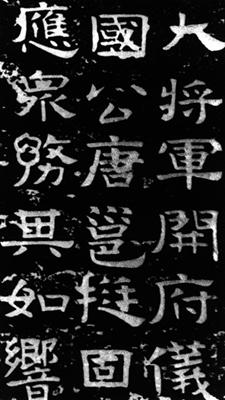 大將軍開府儀
國公唐邕挺固
應衆務其如響